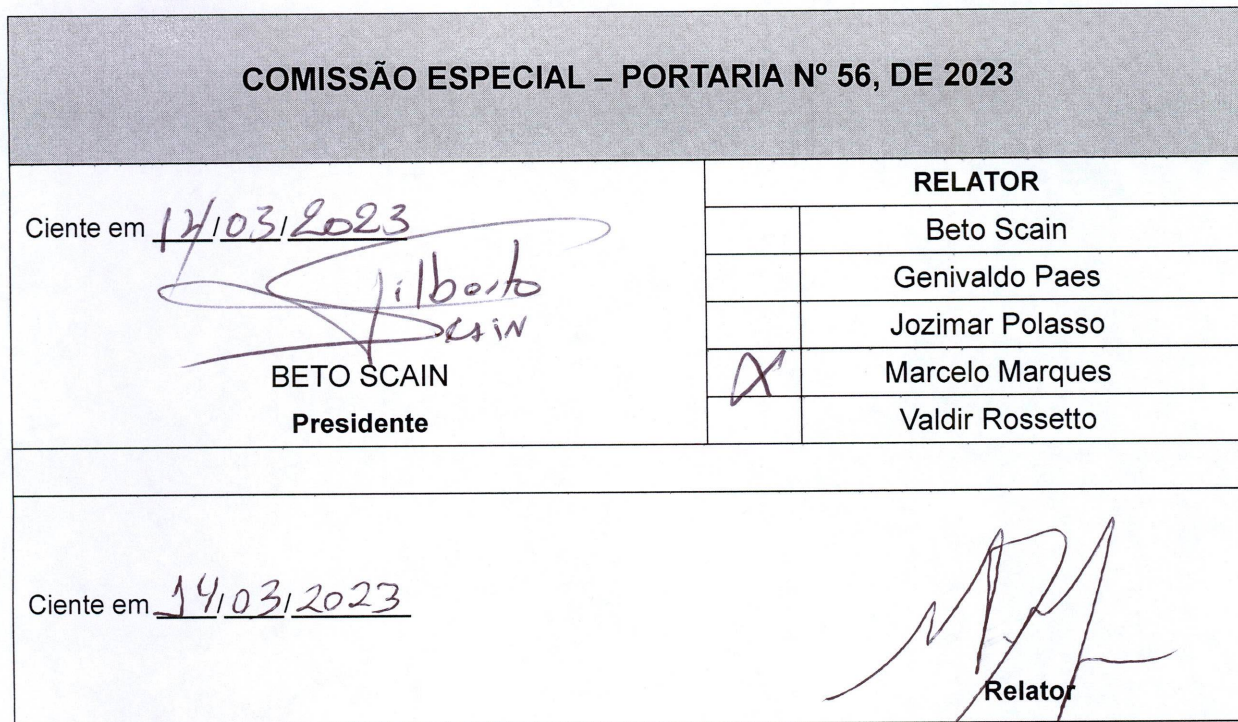 COMISSÃO ESPECIAL – PORTARIA Nº 56, DE 2023
Ciente em 14/03/2023
Gilberto
Scain
BETO SCAIN
Presidente
RELATOR
Beto Scain
Genivaldo Paes
Jozimar Polasso
X Marcelo Marques
Valdir Rossetto
Ciente em 14/03/2023
Relator